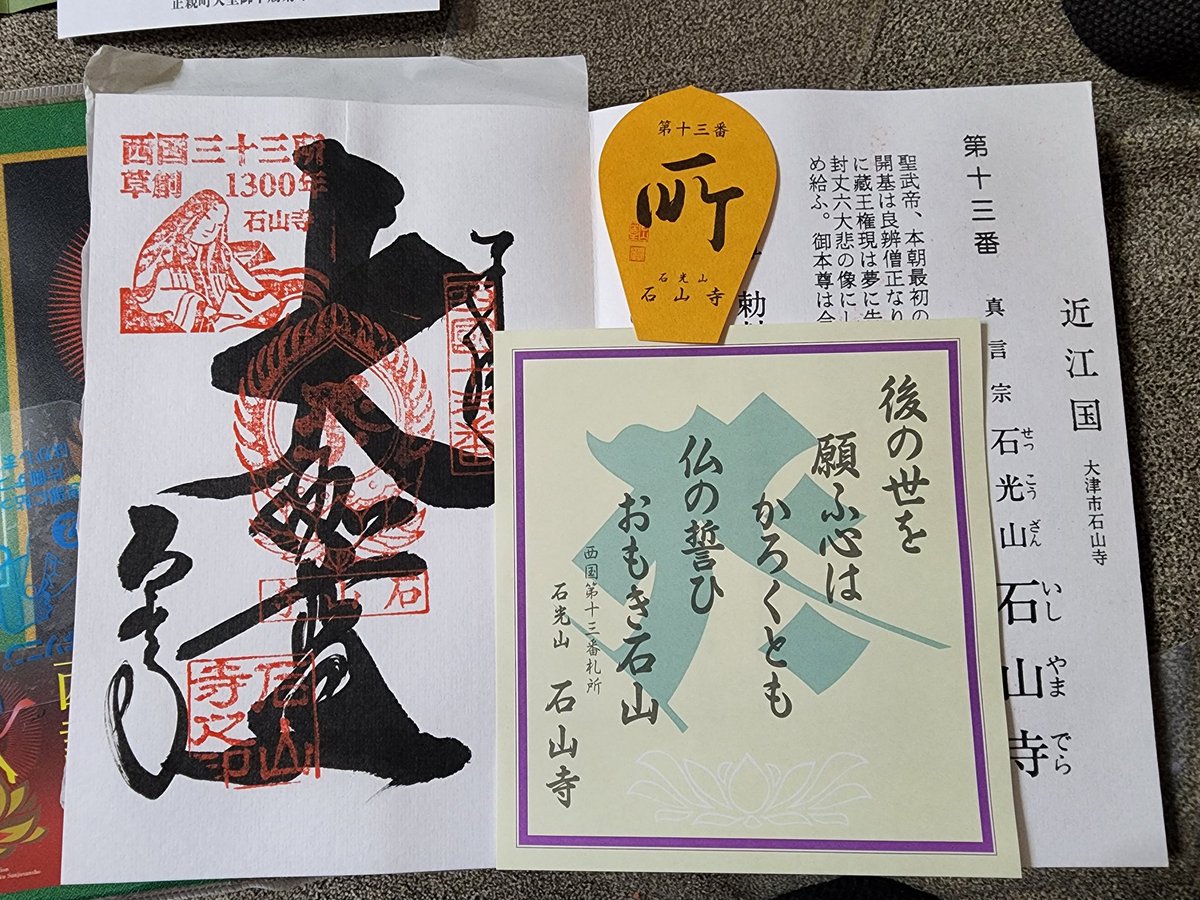 西国三十三所
草創 1300年
石山寺
奉拝
大悲殿
石山寺
西国十三番
石山寺
石山寺之印
第十三番
石光山
石山寺
第十三番
近江国
大津市石山寺
真言宗 石光山 石山寺
せっこうざん いしやまでら
聖武帝、本朝最初の
開基は良辨僧正なり
に蔵王権現は夢に告
封丈六大悲の像にし
め給ふ。御本尊は
勅封
後の世を
願ふ心は
かろくとも
仏の誓ひ
おもき石山
西国第十三番札所
石光山 石山寺